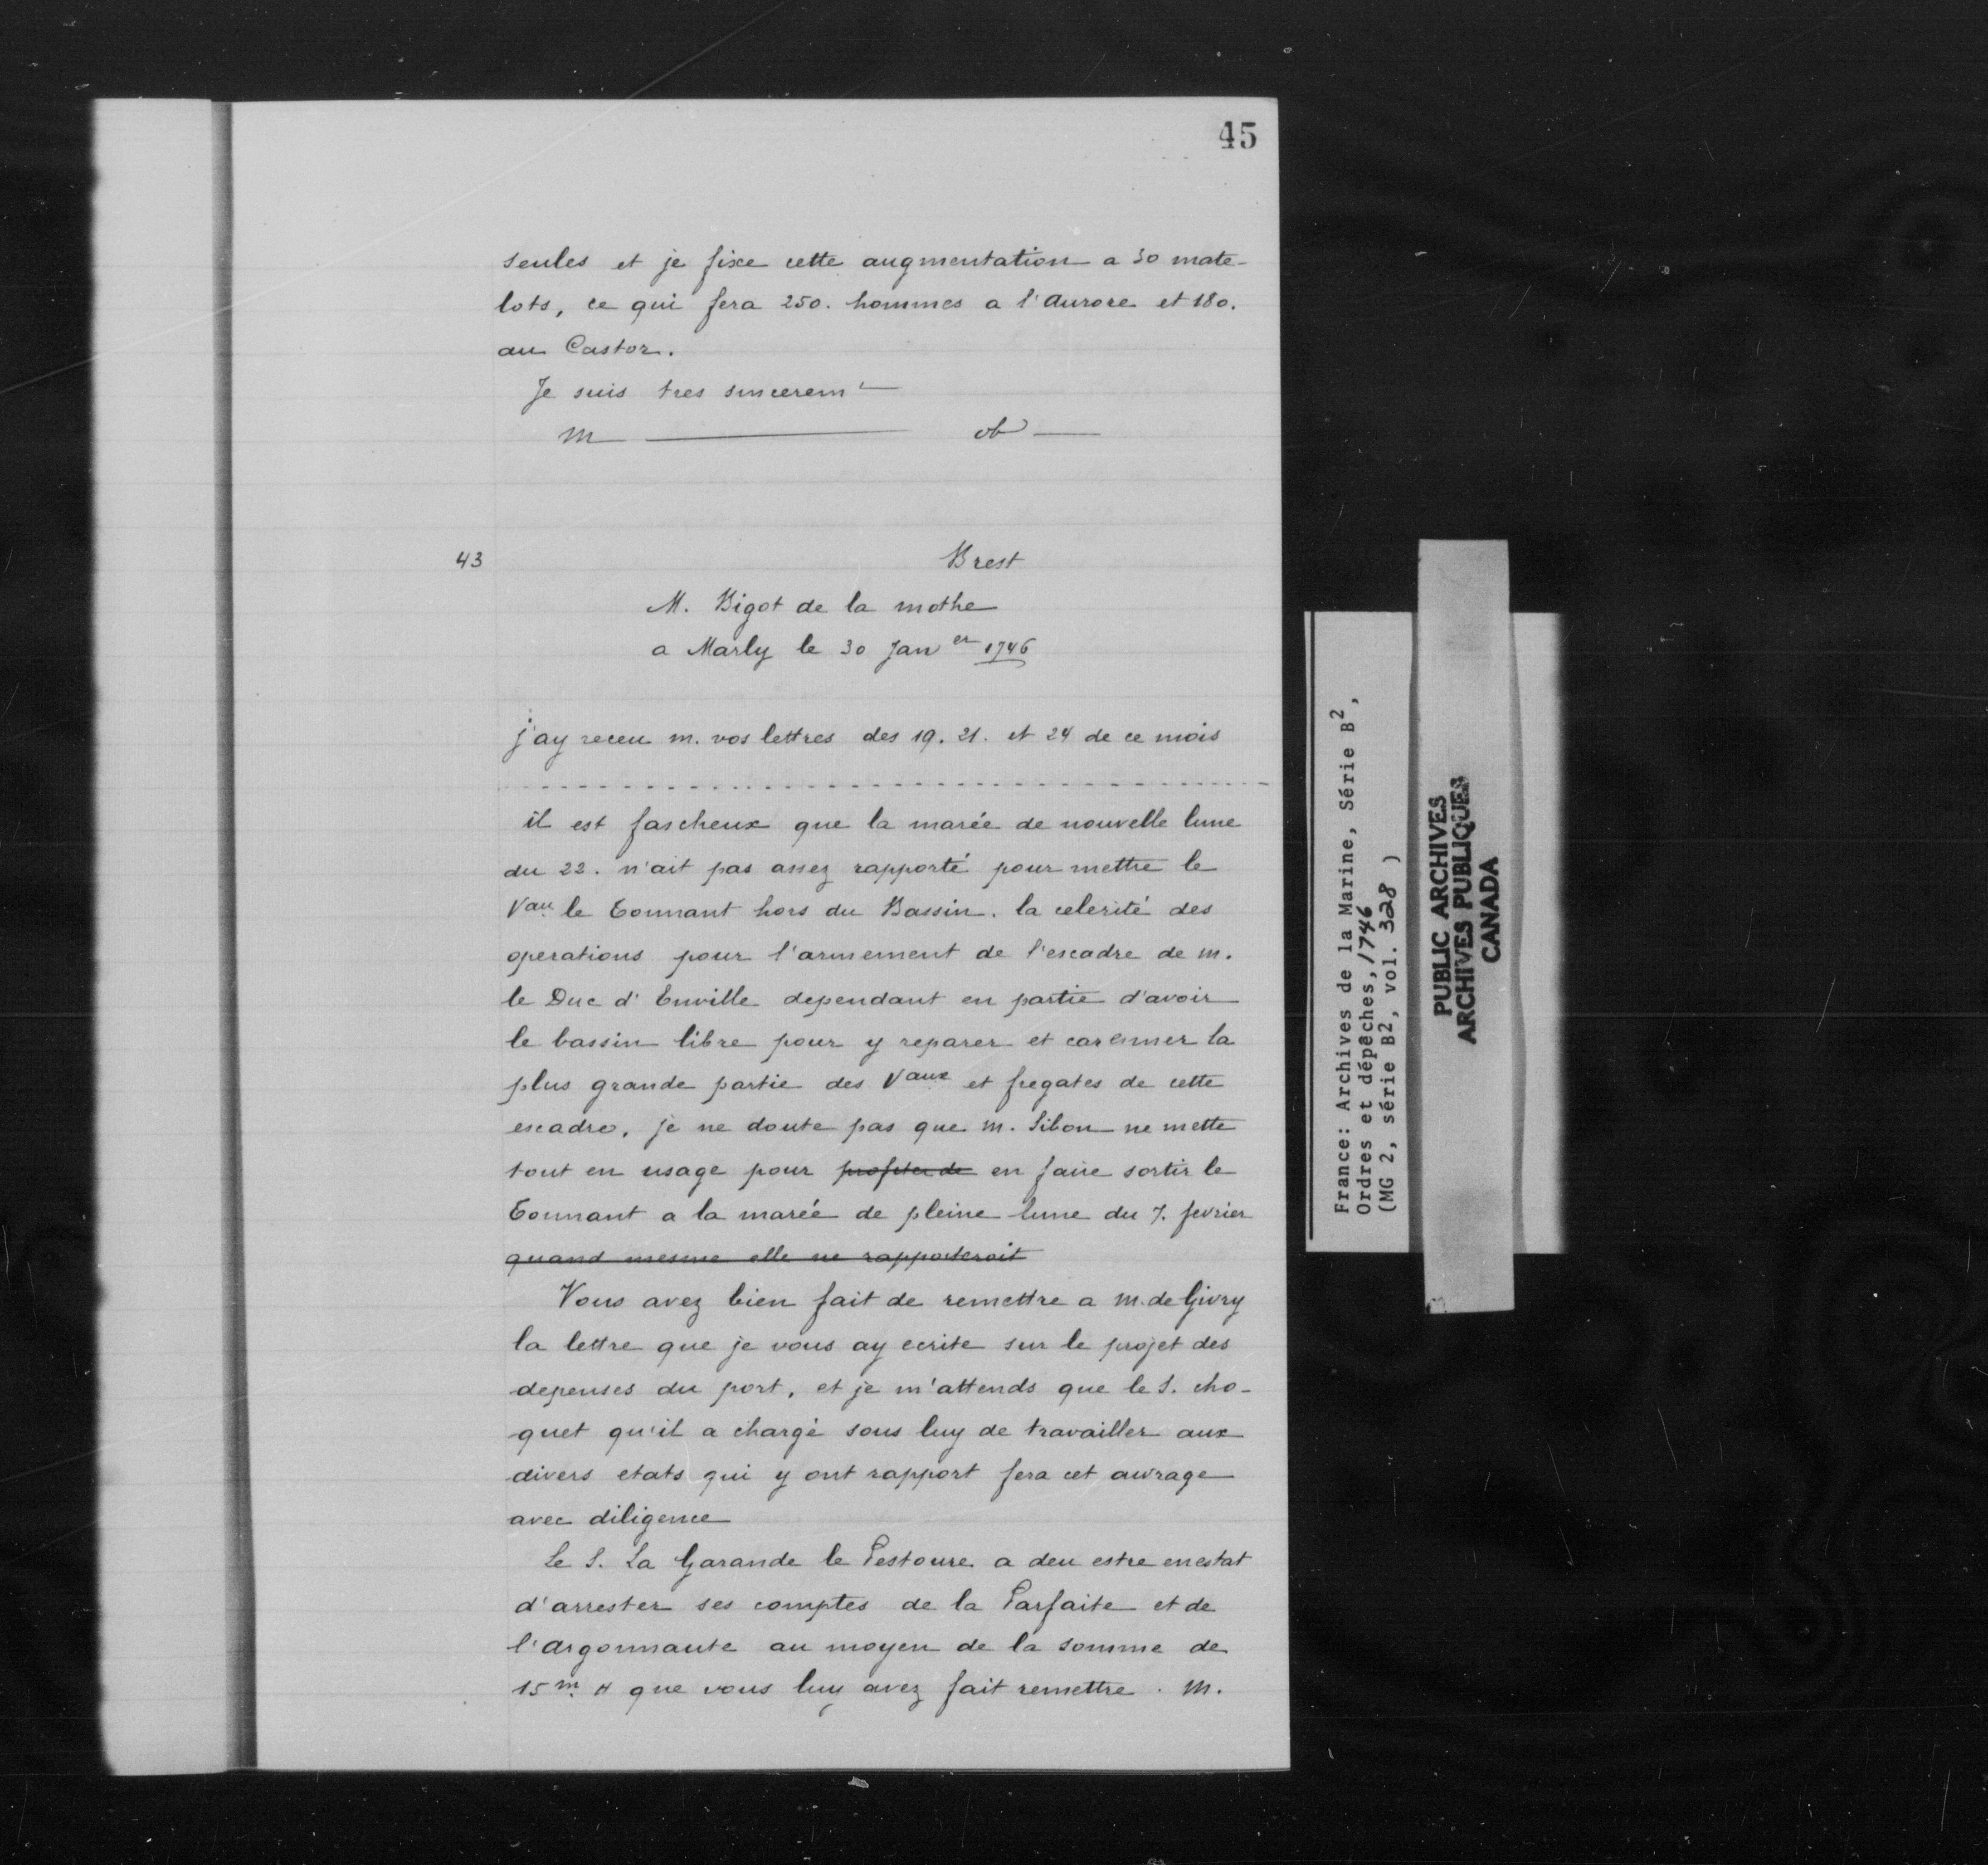 45
seules et je fixe cette augmentation a 30 mate-
lots, ce qui fera 250. hommes a l'Aurore et 180.
au Castor.
Je suis tres sincerem t
M ob
43
Brest
M. Bigot de la mothe
a Marly le 30 Jan er 1746
j'ay receu m. vos lettres des 19. 21. et 24 de ce mois
il est fascheux que la marée de nouvelle lune
du 22. n'ait pas assez rapporté pour mettre le
Vau le Tonnant hors du Bassin. la celerité des
operations pour l'armement de l'escadre de m.
le Duc d'Enville dependant en partie d'avoir
le bassin libre pour y reparer et carenner la
plus grande partie des Vaux et fregates de cette
escadre, je ne doute pas que m. Sibon ne mette
tout en usage pour profiter de en faire sortir le
Tonnant a la marée de pleine lune du 7. fevrier
quand mesme elle ne rapporteroit
Vous avez bien fait de remettre a m. de Givry
la lettre que je vous ay ecrite sur le projet des
depenses du port, et je m'attends que le S. cho-
quet qu'il a chargé sous luy de travailler aux
divers etats qui y ont rapport fera cet ouvrage
avec diligence
Le S. La Garande le Pestoure a deu estre en estat
d'arrester ses comptes de la Parfaite et de
l'argonnaute au moyen de la somme de
15 m. # que vous luy avez fait remettre. M.
France: Archives de la Marine, Série B2,
Ordres et dépêches, 1746
(MG 2, série B2, vol. 328 )
PUBLIC ARCHIVES
ARCHIVES PUBLIQUES
CANADA